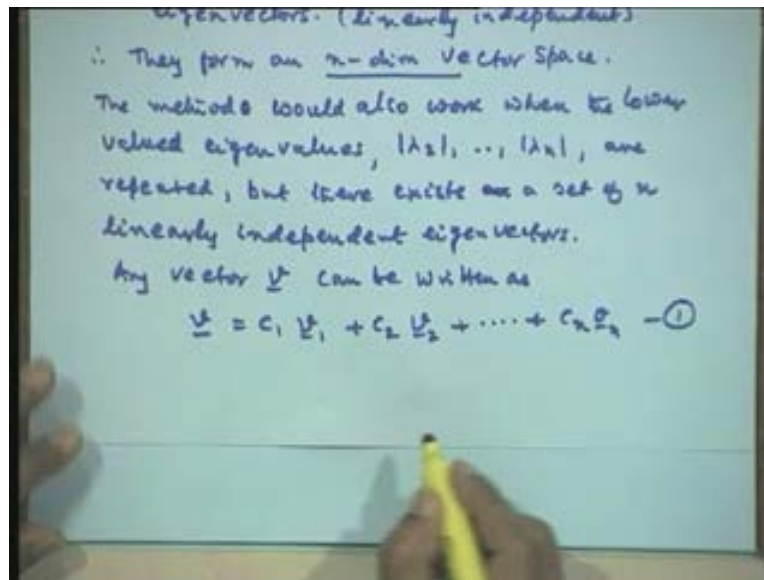 eigenvectors. (linearly independent)
∴ They form an n-dim vector space.
The methods would also work when the lower
valued eigenvalues, |λ2|, .., |λn|, are
repeated, but there exists a set of n
linearly independent eigenvectors.
Any vector v can be written as
v = c1 v1 + c2 v2 + .... + cn vn - ①